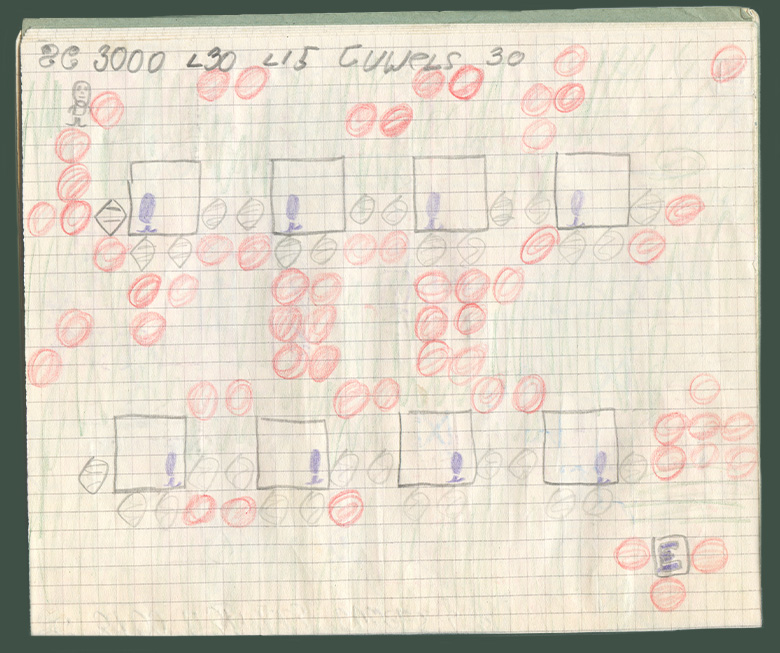 SC 3000 L30 L15 JUWELS 30
E